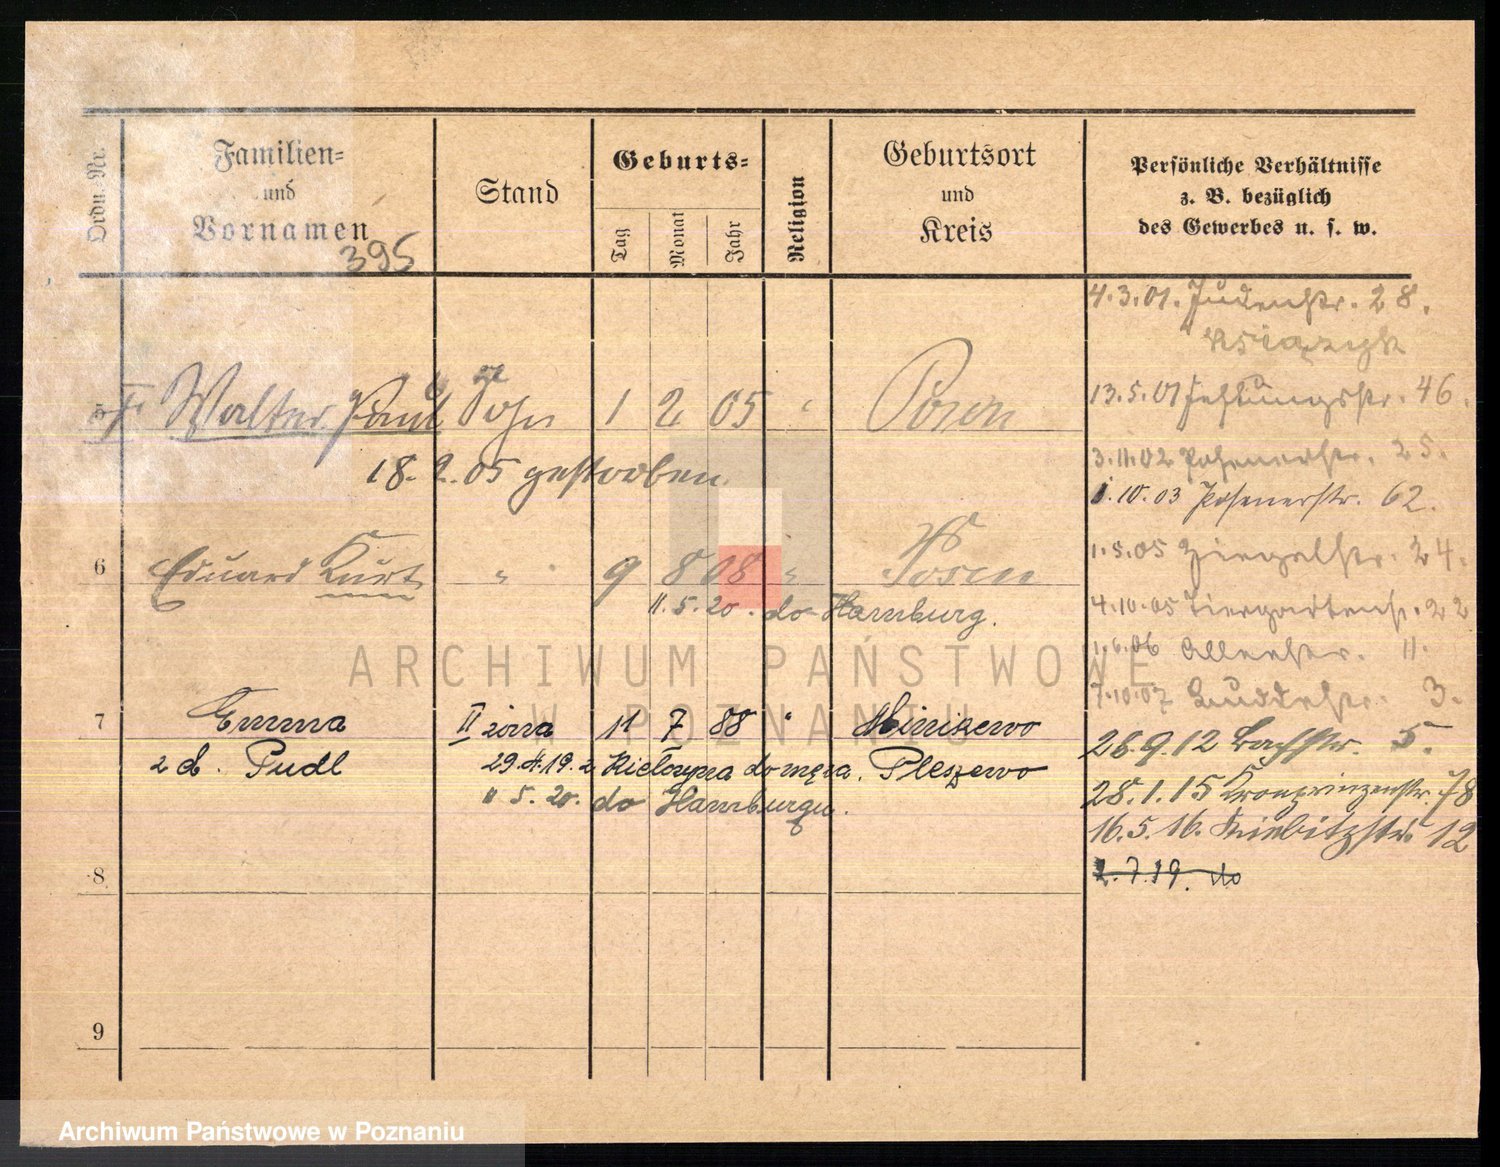 Ordn.-Nr.
Familien=
und
Vornamen
395
Stand
Geburts=
Tag
Monat
Jahr
Religion
Geburtsort
und
Kreis
Persönliche Verhältnisse
z. B. bezüglich
des Gewerbes u. s. w.
4.3.01. Judenstr. 28.
Książyk
13.5.01 Festungsstr. 46.
Walter Paul Sohn 1 2 05 " Posen
3.11.02 Posenerstr. 25.
18.2.05 gestorben.
1.10.03 Posenerstr. 62.
1.5.05 Ziegelstr. 24.
6 Eduard Kurt " 9 8 08 " Posen
11.5.20. do Hamburg.
4.10.05 Tiergartenstr. 22
1.6.06 Allerstr. 11.
7.10.07 Buddestr. 3.
7 Emma II żona 11 7 88 "
26.9.12 Bachstr. 5.
2 d. Pudl 29.4.19. z Kiełczyna do męża. Pleszewo
28.1.15 Kronprinzenstr. 78
11 5.20. do Hamburga.
16.5.16. Kiebitzstr. 12
8
2.7.19. do
9
ARCHIWUM PAŃSTWOWE
W POZNANIU
Archiwum Państwowe w Poznaniu